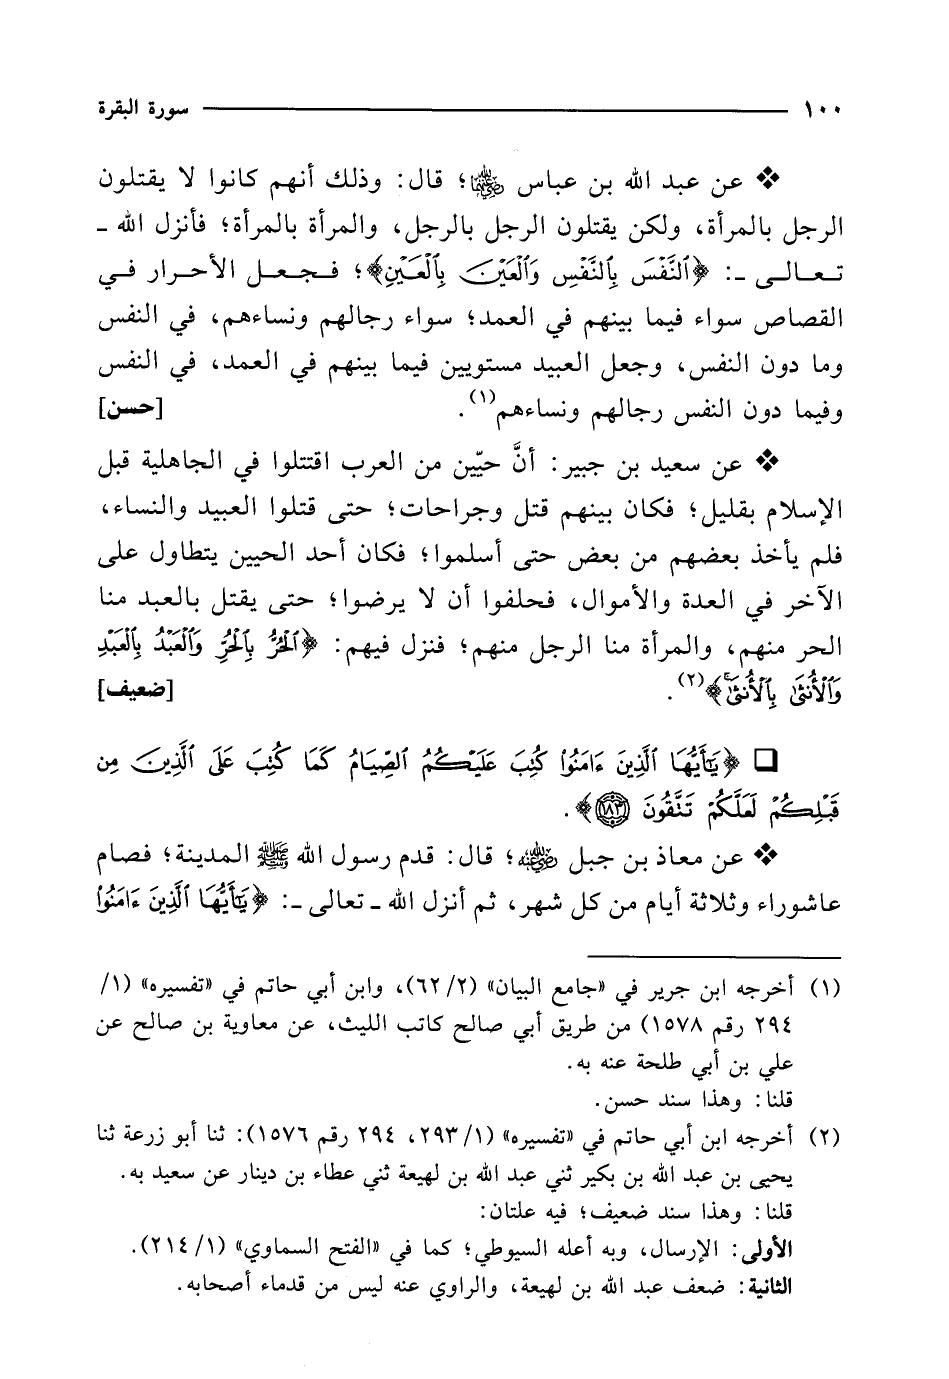 ١٠٠ سورة البقرة
❖ عن عبد الله بن عباس ﵄؛ قال: وذلك أنهم كانوا لا يقتلون
الرجل بالمرأة، ولكن يقتلون الرجل بالرجل، والمرأة بالمرأة؛ فأنزل الله ـ
تعالى ـ: ﴿ٱلنَّفْسَ بِٱلنَّفْسِ وَٱلْعَيْنَ بِٱلْعَيْنِ﴾؛ فجعل الأحرار في
القصاص سواء فيما بينهم في العمد؛ سواء رجالهم ونساءهم، في النفس
وما دون النفس، وجعل العبيد مستويين فيما بينهم في العمد، في النفس
وفيما دون النفس رجالهم ونساءهم(١). [حسن]
❖ عن سعيد بن جبير: أنَّ حيّين من العرب اقتتلوا في الجاهلية قبل
الإسلام بقليل؛ فكان بينهم قتل وجراحات؛ حتى قتلوا العبيد والنساء،
فلم يأخذ بعضهم من بعض حتى أسلموا؛ فكان أحد الحيين يتطاول على
الآخر في العدة والأموال، فحلفوا أن لا يرضوا؛ حتى يقتل بالعبد منا
الحر منهم، والمرأة منا الرجل منهم؛ فنزل فيهم: ﴿ٱلْحُرُّ بِٱلْحُرِّ وَٱلْعَبْدُ بِٱلْعَبْدِ
وَٱلْأُنثَىٰ بِٱلْأُنثَىٰۚ﴾(٢). [ضعيف]
❏ ﴿يَٰٓأَيُّهَا ٱلَّذِينَ ءَامَنُوا۟ كُتِبَ عَلَيْكُمُ ٱلصِّيَامُ كَمَا كُتِبَ عَلَى ٱلَّذِينَ مِن
قَبْلِكُمْ لَعَلَّكُمْ تَتَّقُونَ ١٨٣﴾.
❖ عن معاذ بن جبل ﵁؛ قال: قدم رسول الله ﷺ المدينة؛ فصام
عاشوراء وثلاثة أيام من كل شهر، ثم أنزل الله ـ تعالى ـ: ﴿يَٰٓأَيُّهَا ٱلَّذِينَ ءَامَنُوا۟
(١) أخرجه ابن جرير في «جامع البيان» (٢/ ٦٢)، وابن أبي حاتم في «تفسيره» (١/
٢٩٤ رقم ١٥٧٨) من طريق أبي صالح كاتب الليث، عن معاوية بن صالح عن
علي بن أبي طلحة عنه به.
قلنا: وهذا سند حسن.
(٢) أخرجه ابن أبي حاتم في «تفسيره» (١/ ٢٩٣، ٢٩٤ رقم ١٥٧٦): ثنا أبو زرعة ثنا
يحيى بن عبد الله بن بكير ثني عبد الله بن لهيعة ثني عطاء بن دينار عن سعيد به.
قلنا: وهذا سند ضعيف؛ فيه علتان:
الأولى: الإرسال، وبه أعله السيوطي؛ كما في «الفتح السماوي» (١/ ٢١٤).
الثانية: ضعف عبد الله بن لهيعة، والراوي عنه ليس من قدماء أصحابه.